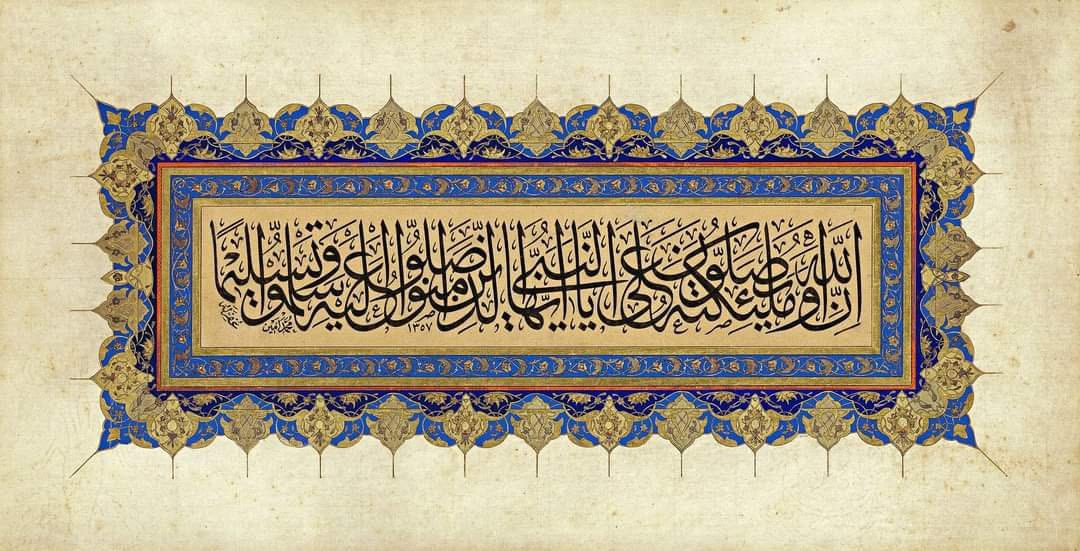 إن الله وملئكته يصلون على النبي يا أيها الذين آمنوا صلوا عليه وسلموا تسليما
محمد أمين ١٣٥٧